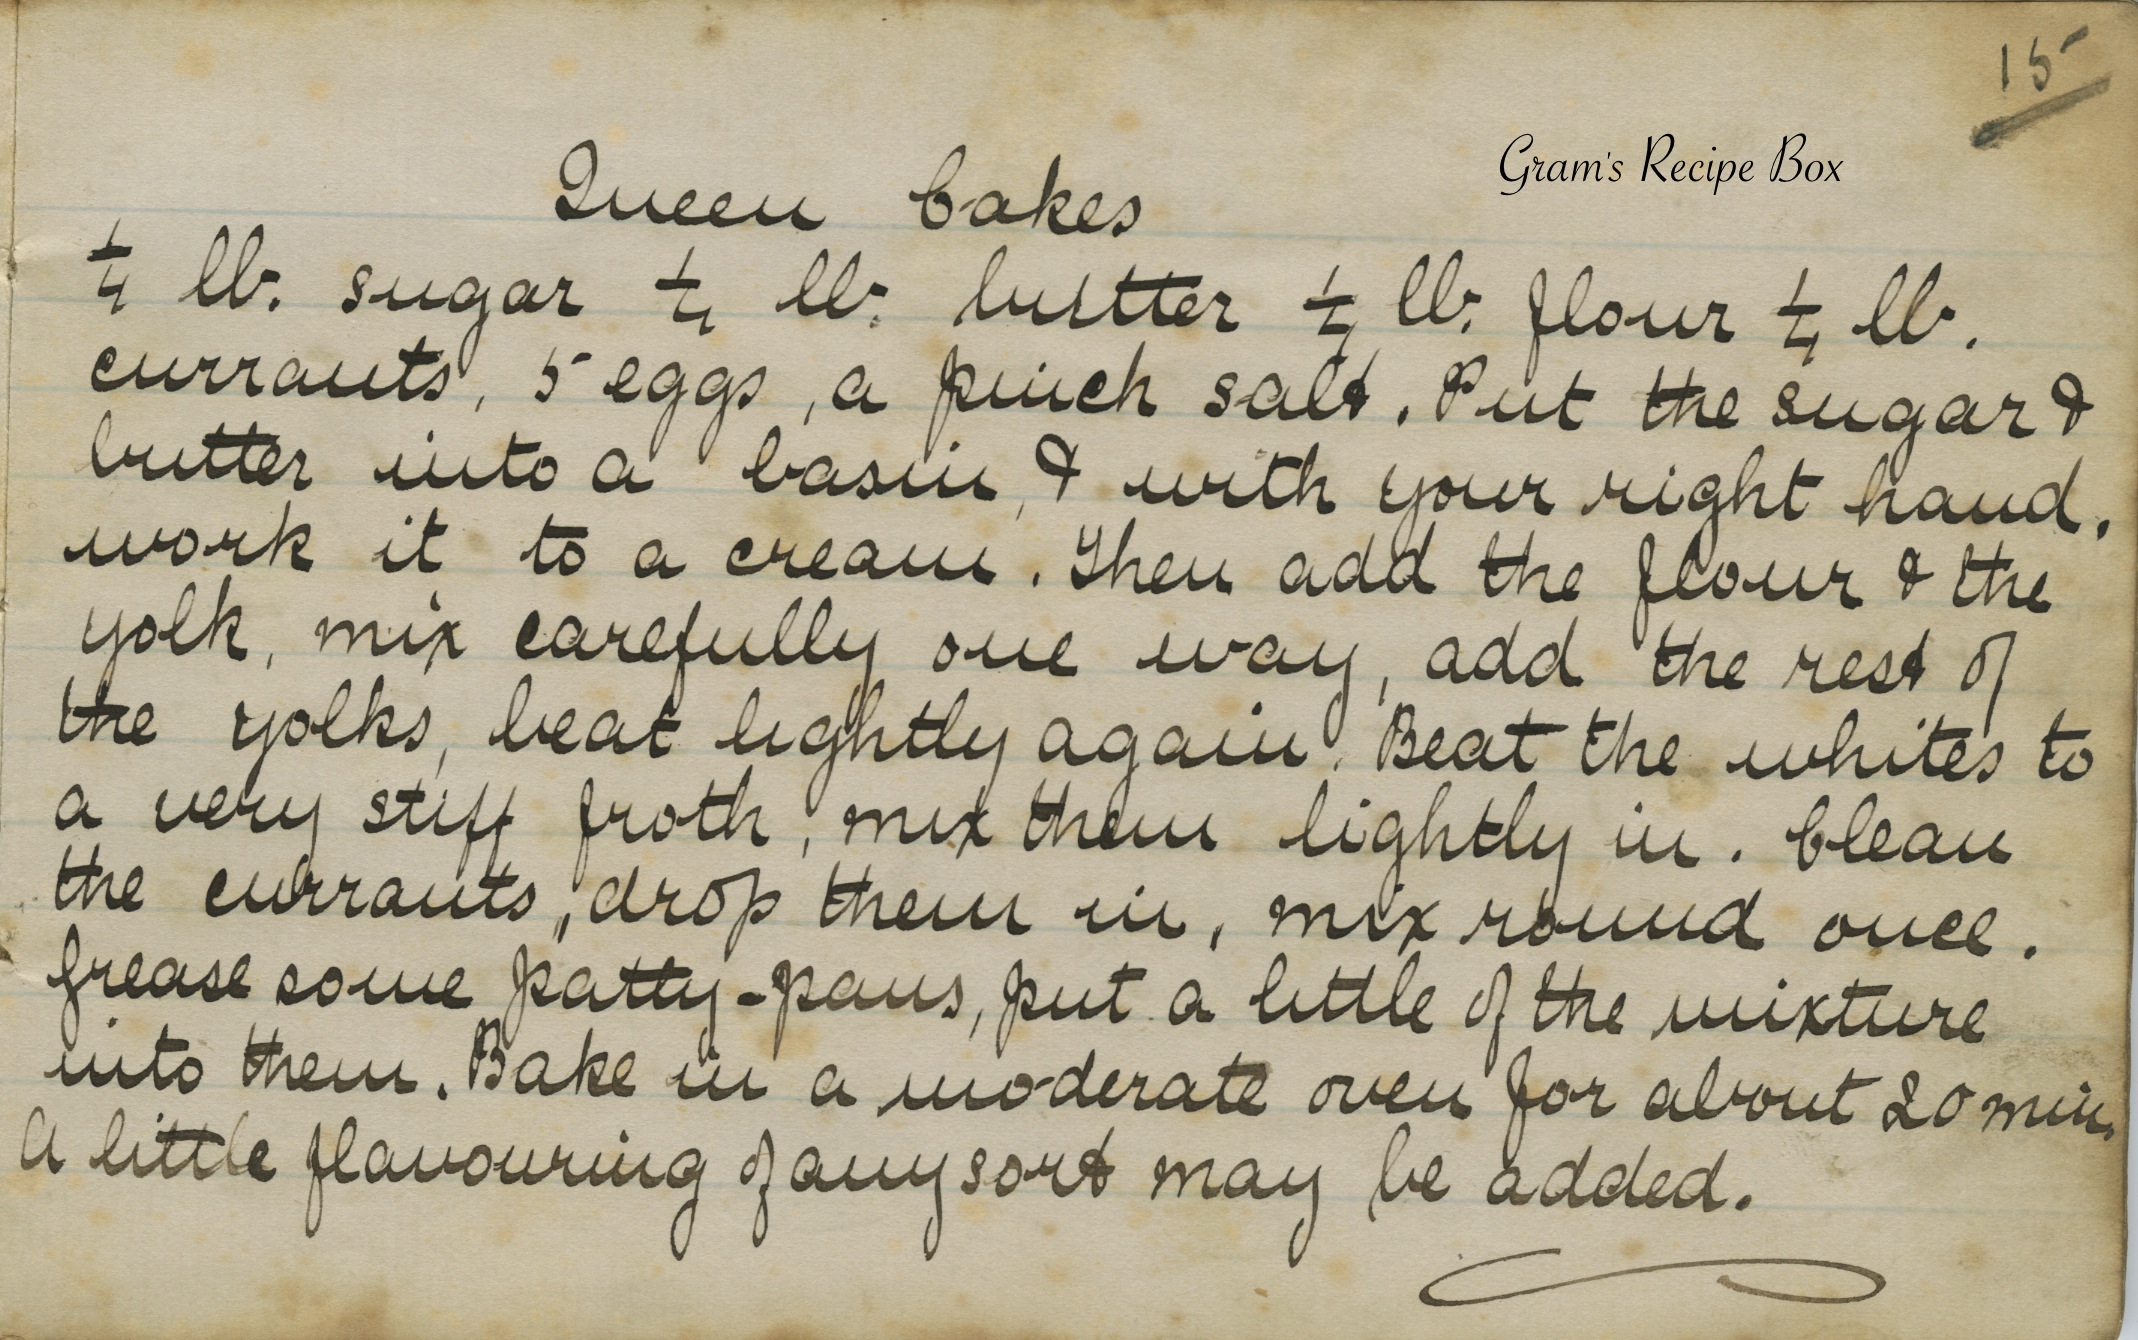 15
Gram's Recipe Box
Queen Cakes
1/4 lb. sugar 1/4 lb. butter 1/4 lb. flour 1/4 lb.
currants, 5 eggs, a pinch salt. Put the sugar &
butter into a basin, & with your right hand,
work it to a cream. Then add the flour & the
yolk, mix carefully one way, add the rest of
the yolks, beat lightly again. Beat the whites to
a very stiff froth, mix them lightly in. Clean
the currants, drop them in, mix round once.
Grease some patty-pans, put a little of the mixture
into them. Bake in a moderate oven for about 20 min.
A little flavouring of any sort may be added.